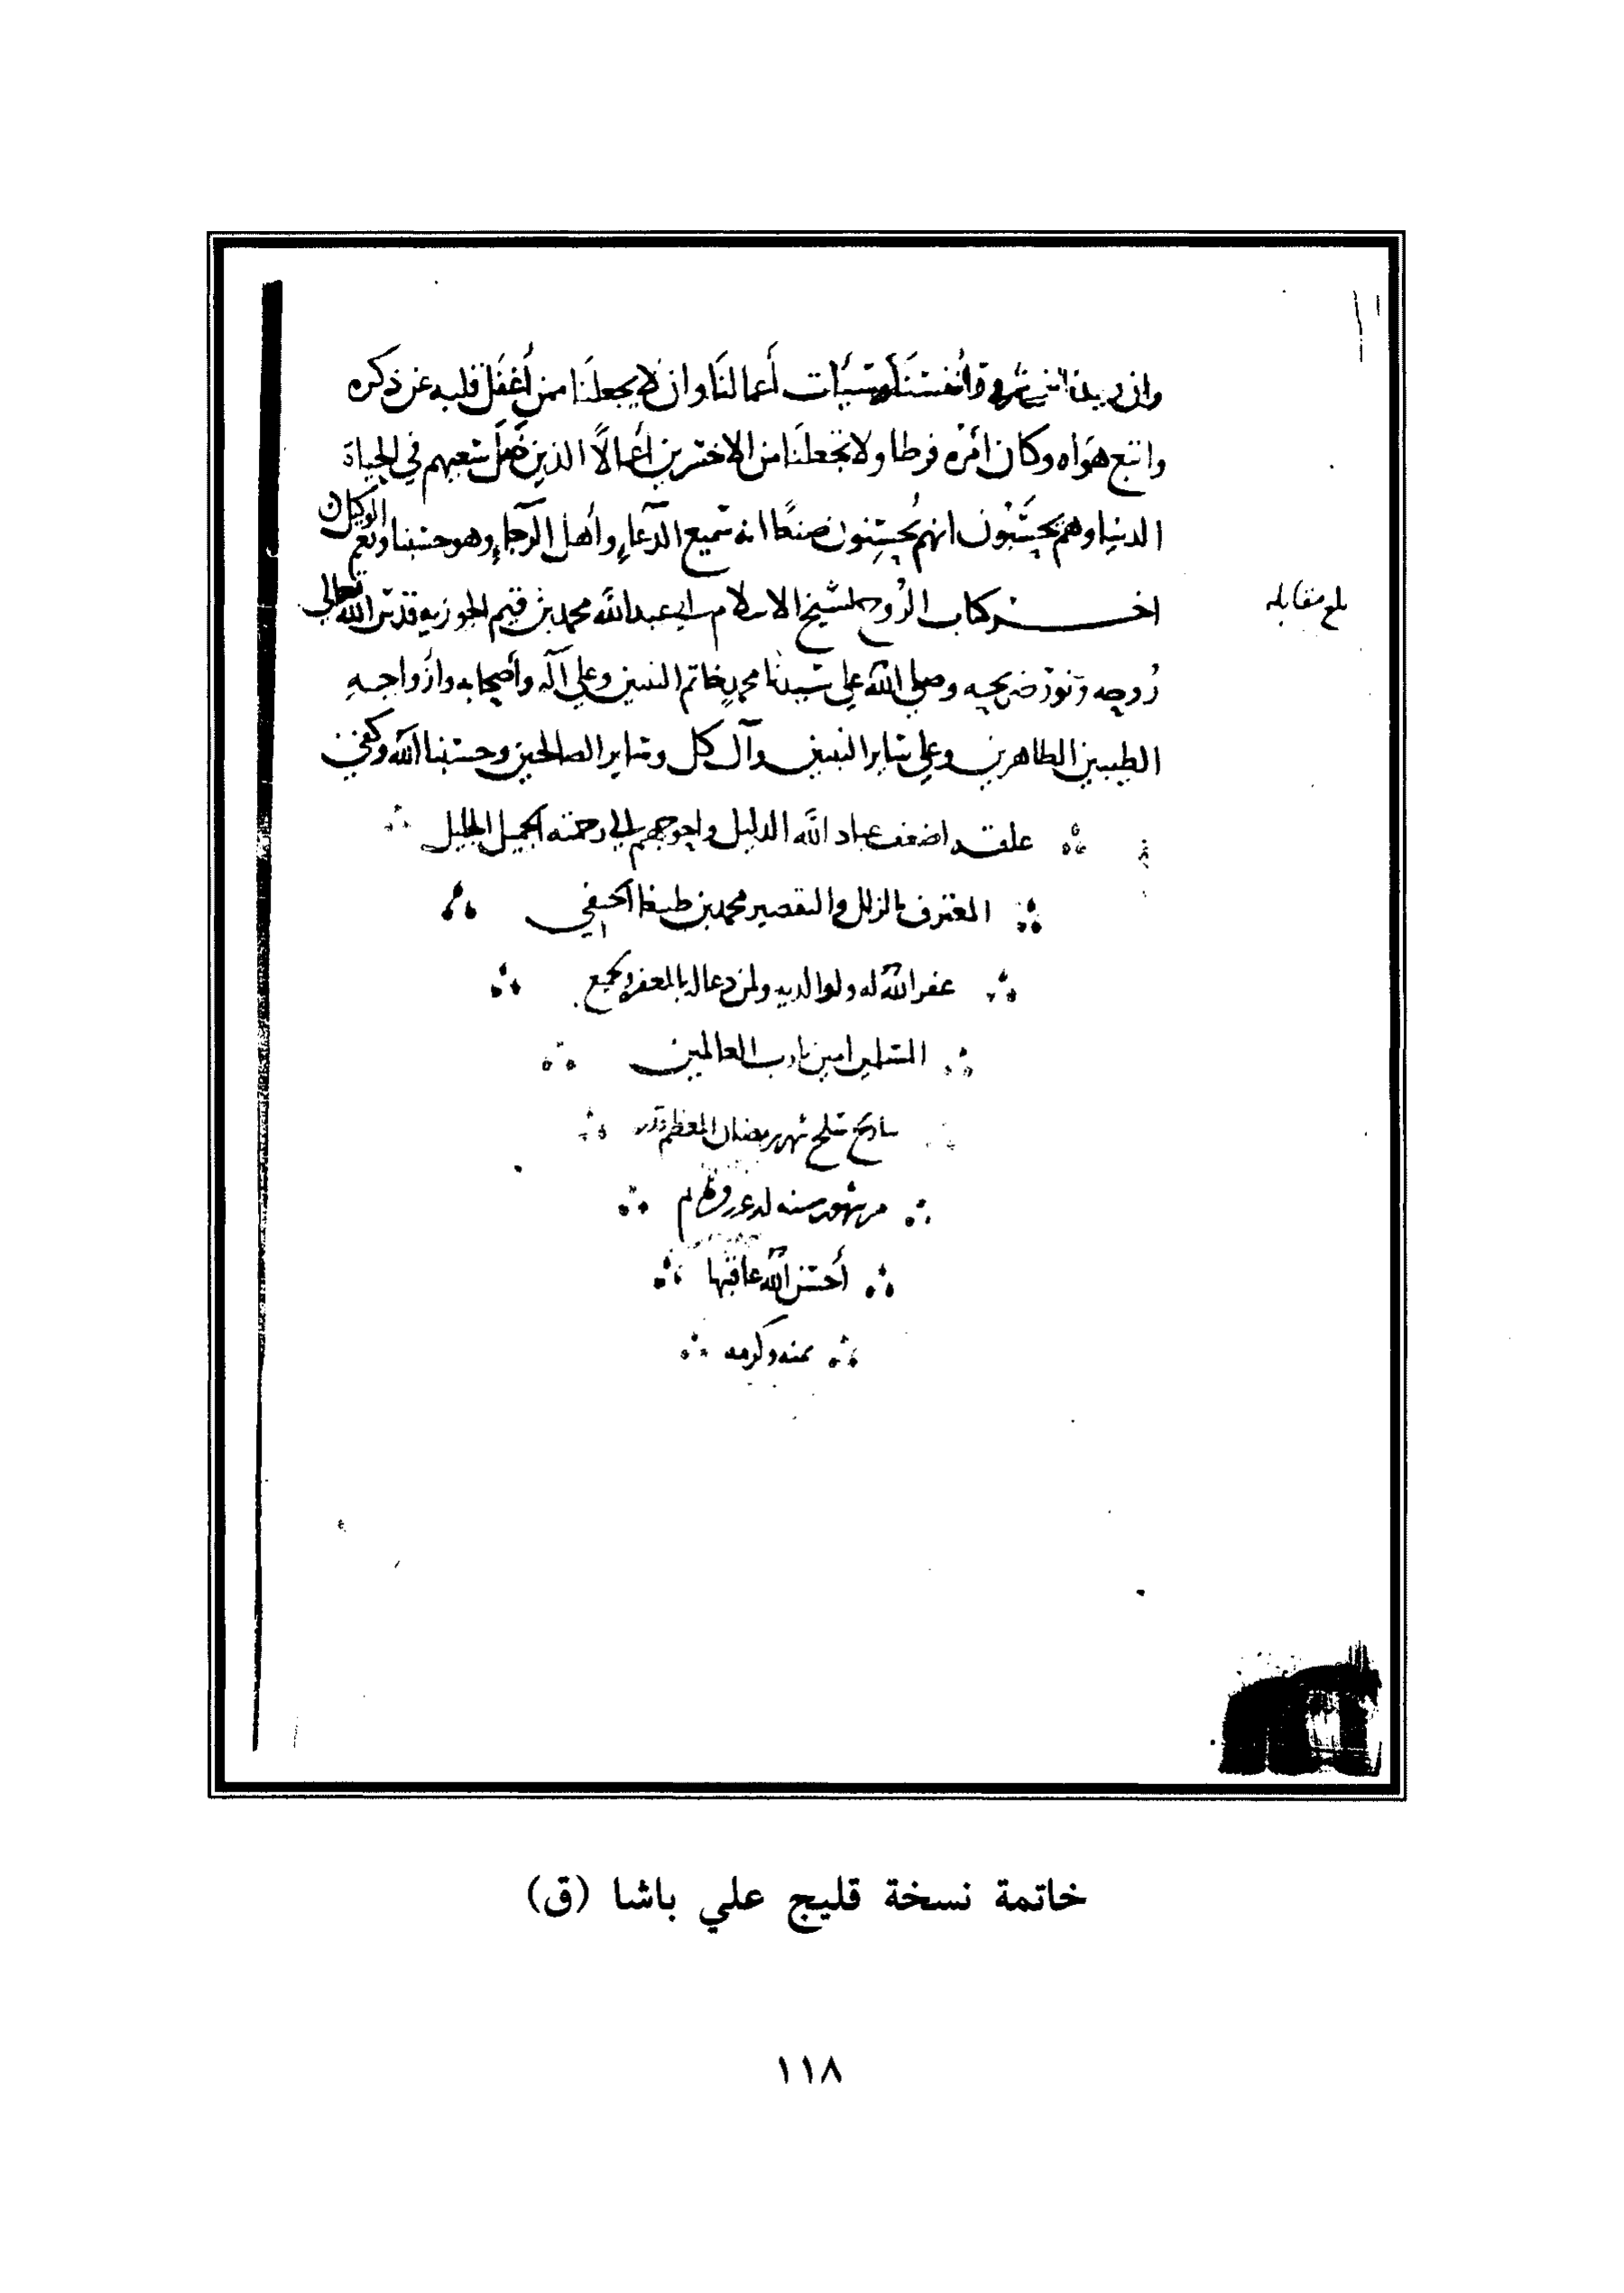 وان يعيذنا من شرور أنفسنا وسيئات أعمالنا وان لا يجعلنا ممن أغفل قلبه عن ذكره
واتبع هواه وكان أمره فرطا ولا يجعلنا من الاخسرين أعمالًا الذين ضل سعيهم في الحياة
الدنيا وهم يحسبون انهم يحسنون صنعًا انه سميع الدعاء وأهل الرجاء وهو حسبنا ونعم الوكيل
اخر كتاب الروح لشيخ الاسلام ابي عبد الله محمد بن قيم الجوزيه قدس الله تعالى
روحه ونور ضريحه وصلى الله على سيدنا محمد خاتم النبيين وعلى آله وأصحابه وازواجه
الطيبين الطاهرين وعلى ساير النبيين وآل كل وساير الصالحين وحسبنا الله وكفى
علقه اضعف عباد الله الذليل واحوجهم الى رحمته الجميل الجليل
المعترف بالزلل والتقصير محمد بن طيبغا الحنفي
غفر الله له ولوالديه ولمن دعا له بالمغفرة ولجميع
المسلمين امين يارب العالمين
بتاريخ سلخ شهر رمضان المعظم قدره
من شهور سنه
أحسن الله عاقبتها
بمنه وكرمه
بلغ مقابله
خاتمة نسخة قليج علي باشا (ق)
١١٨